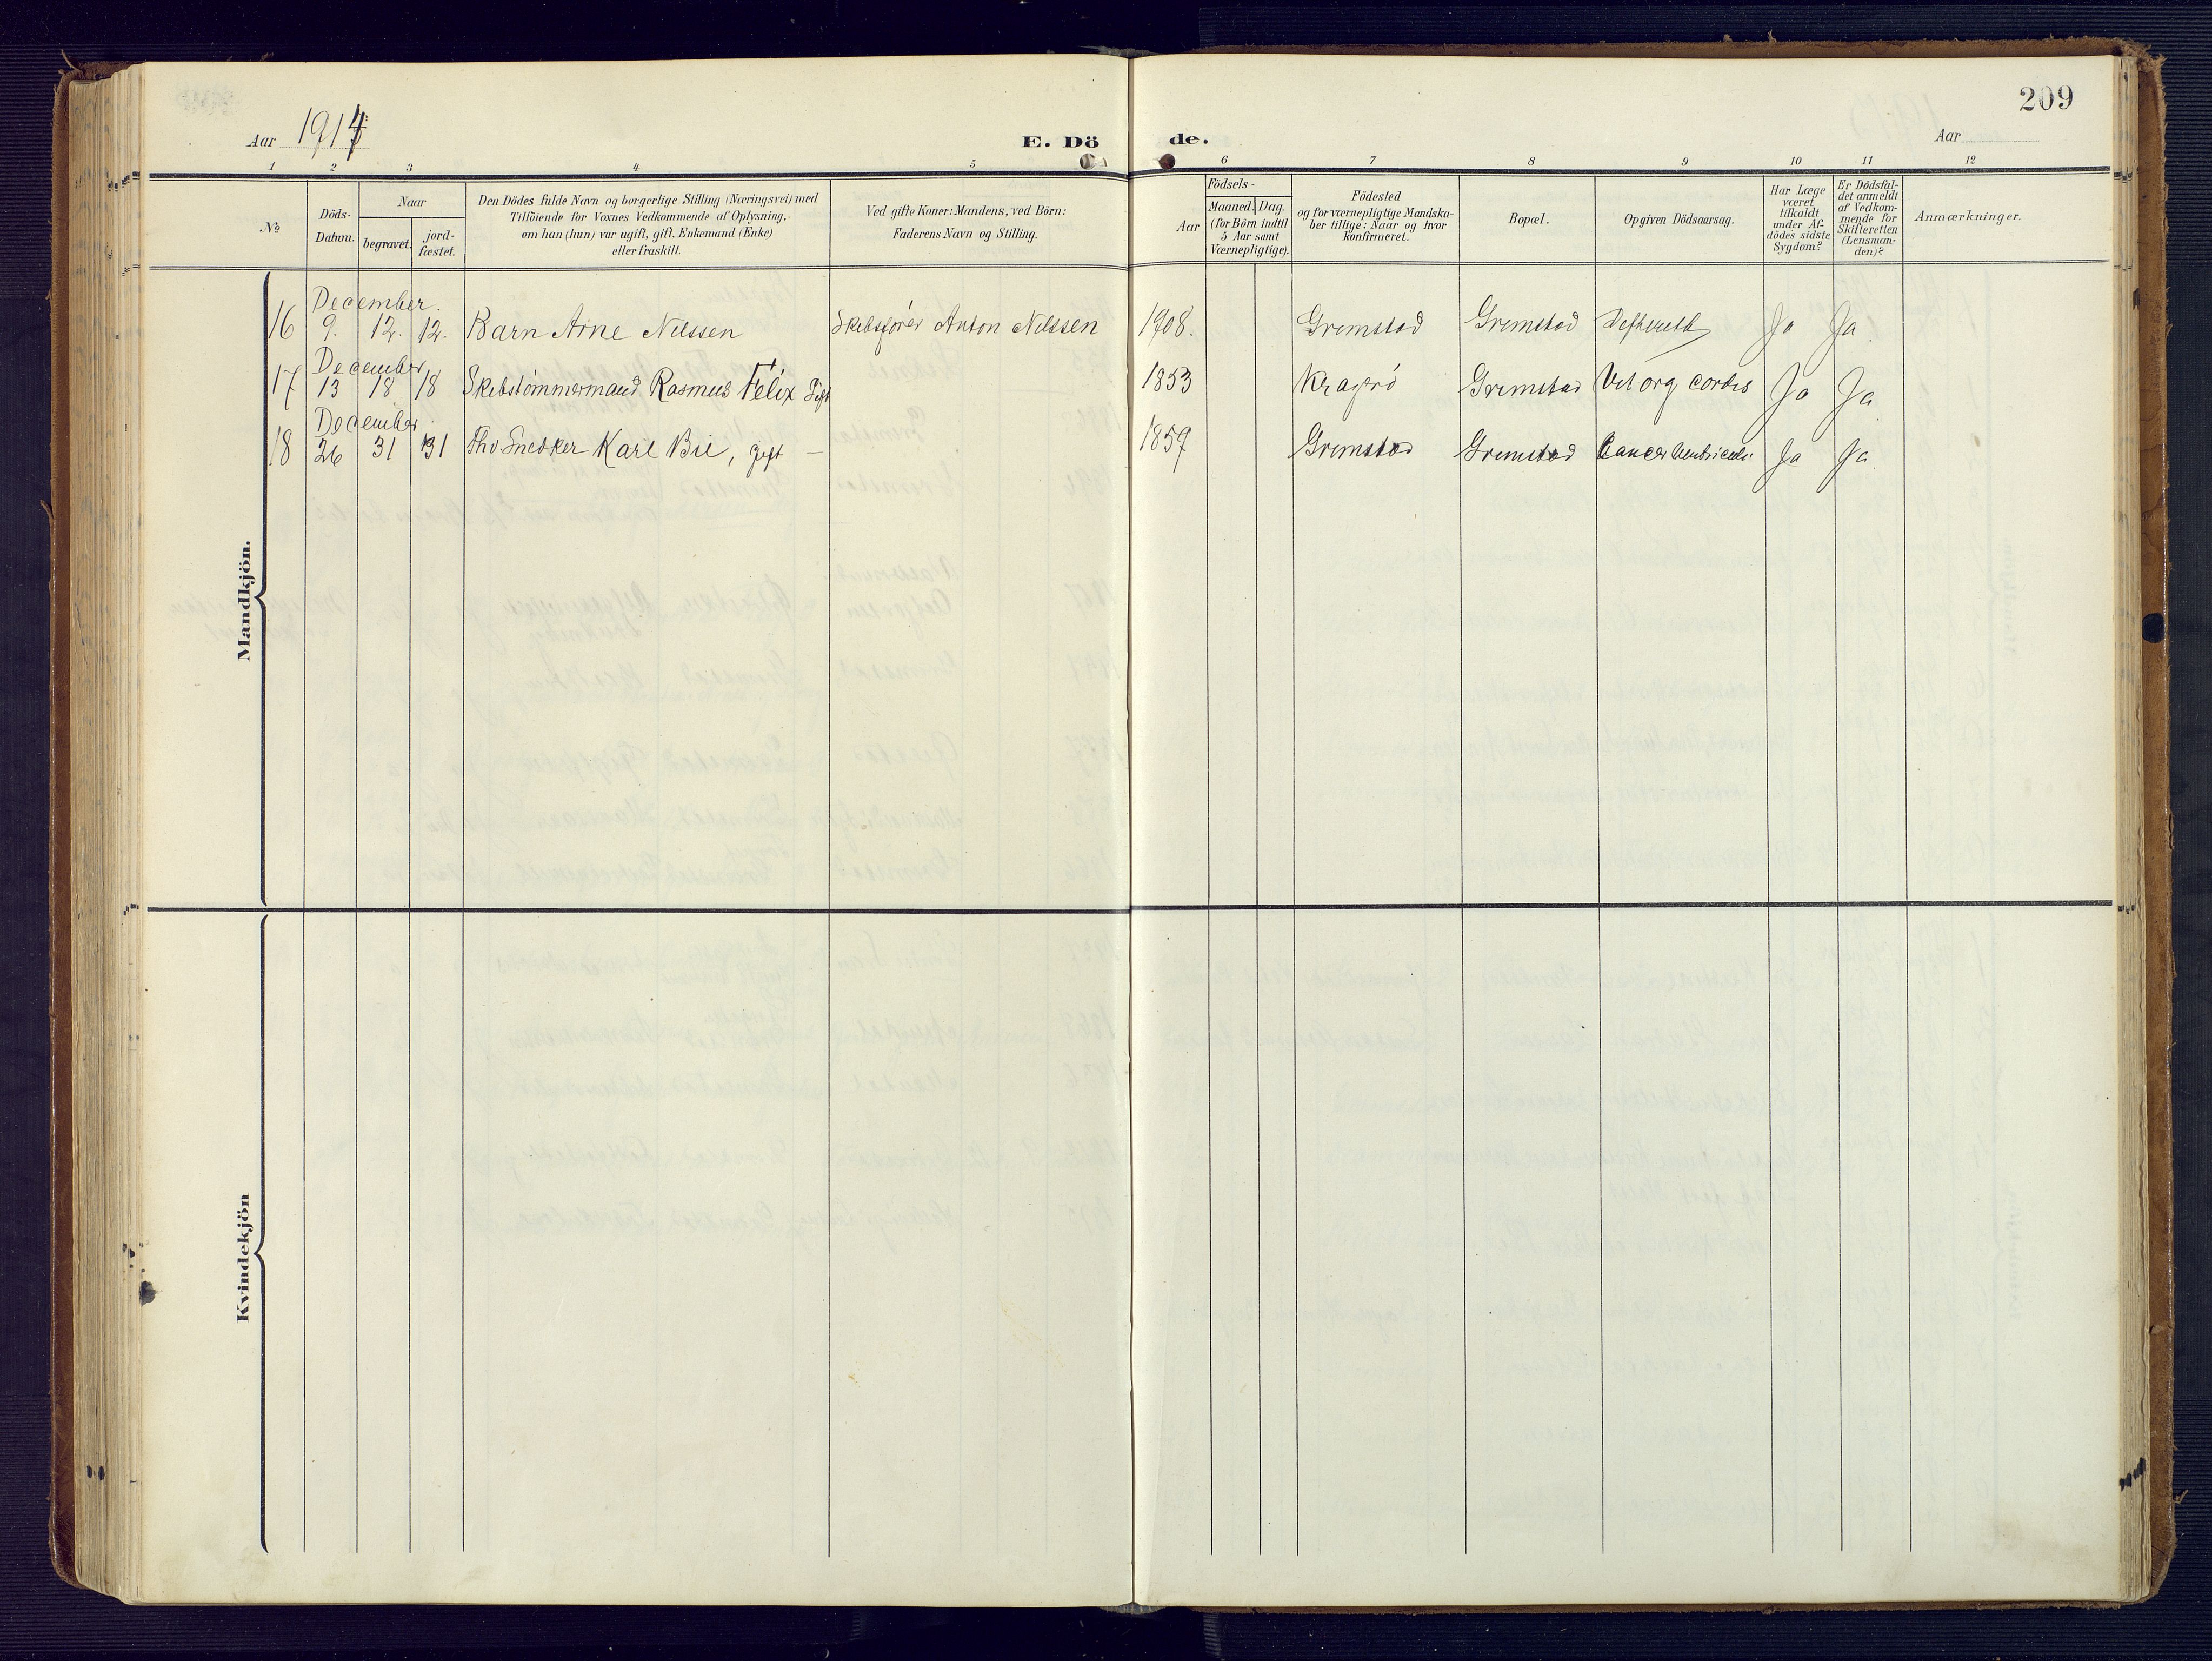 209
Aar 1914
E. Dö de.
Aar
1 2 3 4 5 6 7 8 9 10 11 12
№
Döds-Datum.
Naar
begravet.
jord-fæstet.
Den Dödes fulde Navn og borgerlige Stilling (Næringsvei) med
Tilföiende for Voxnes Vedkommende af Oplysning,
om han (hun) var ugift, gift, Enkemand (Enke)
eller fraskilt.
Ved gifte Koner: Mandens, ved Börn:
Faderens Navn og Stilling.
Födsels-
Aar
Maaned. Dag.
(for Börn indtil
5 Aar samt
Værnepligtige).
Födested
og for værnepligtige Mandska-
ber tillige: Naar og hvor
konfirmeret.
Bopæl.
Opgiven Dödsaarsag.
Har Læge
været
tilkaldt
under Af-
dödes sidste
Sygdom?
Er Dödsfal-
det anmeldt
af Vedkom-
mende for
Skifteretten
(Lensman-
den)?
Anmærkninger.
Mandkjön.
December.
16 9. 12. 12. Barn Arne Nilssen Skibsfører Anton Nilssen 1908. Grimstad Grimstad Ja Ja
December
17 13 18 18 Skibstømmermand Rasmus Felix Gift 1853 Kragerö Grimstad Vit org cordis Ja Ja
December
18 26 31 31 Thv Snedker Karl Bie, gift — 1859 Grimstad Grimstad Cancer Ventriculi Ja Ja
Kvindekjön